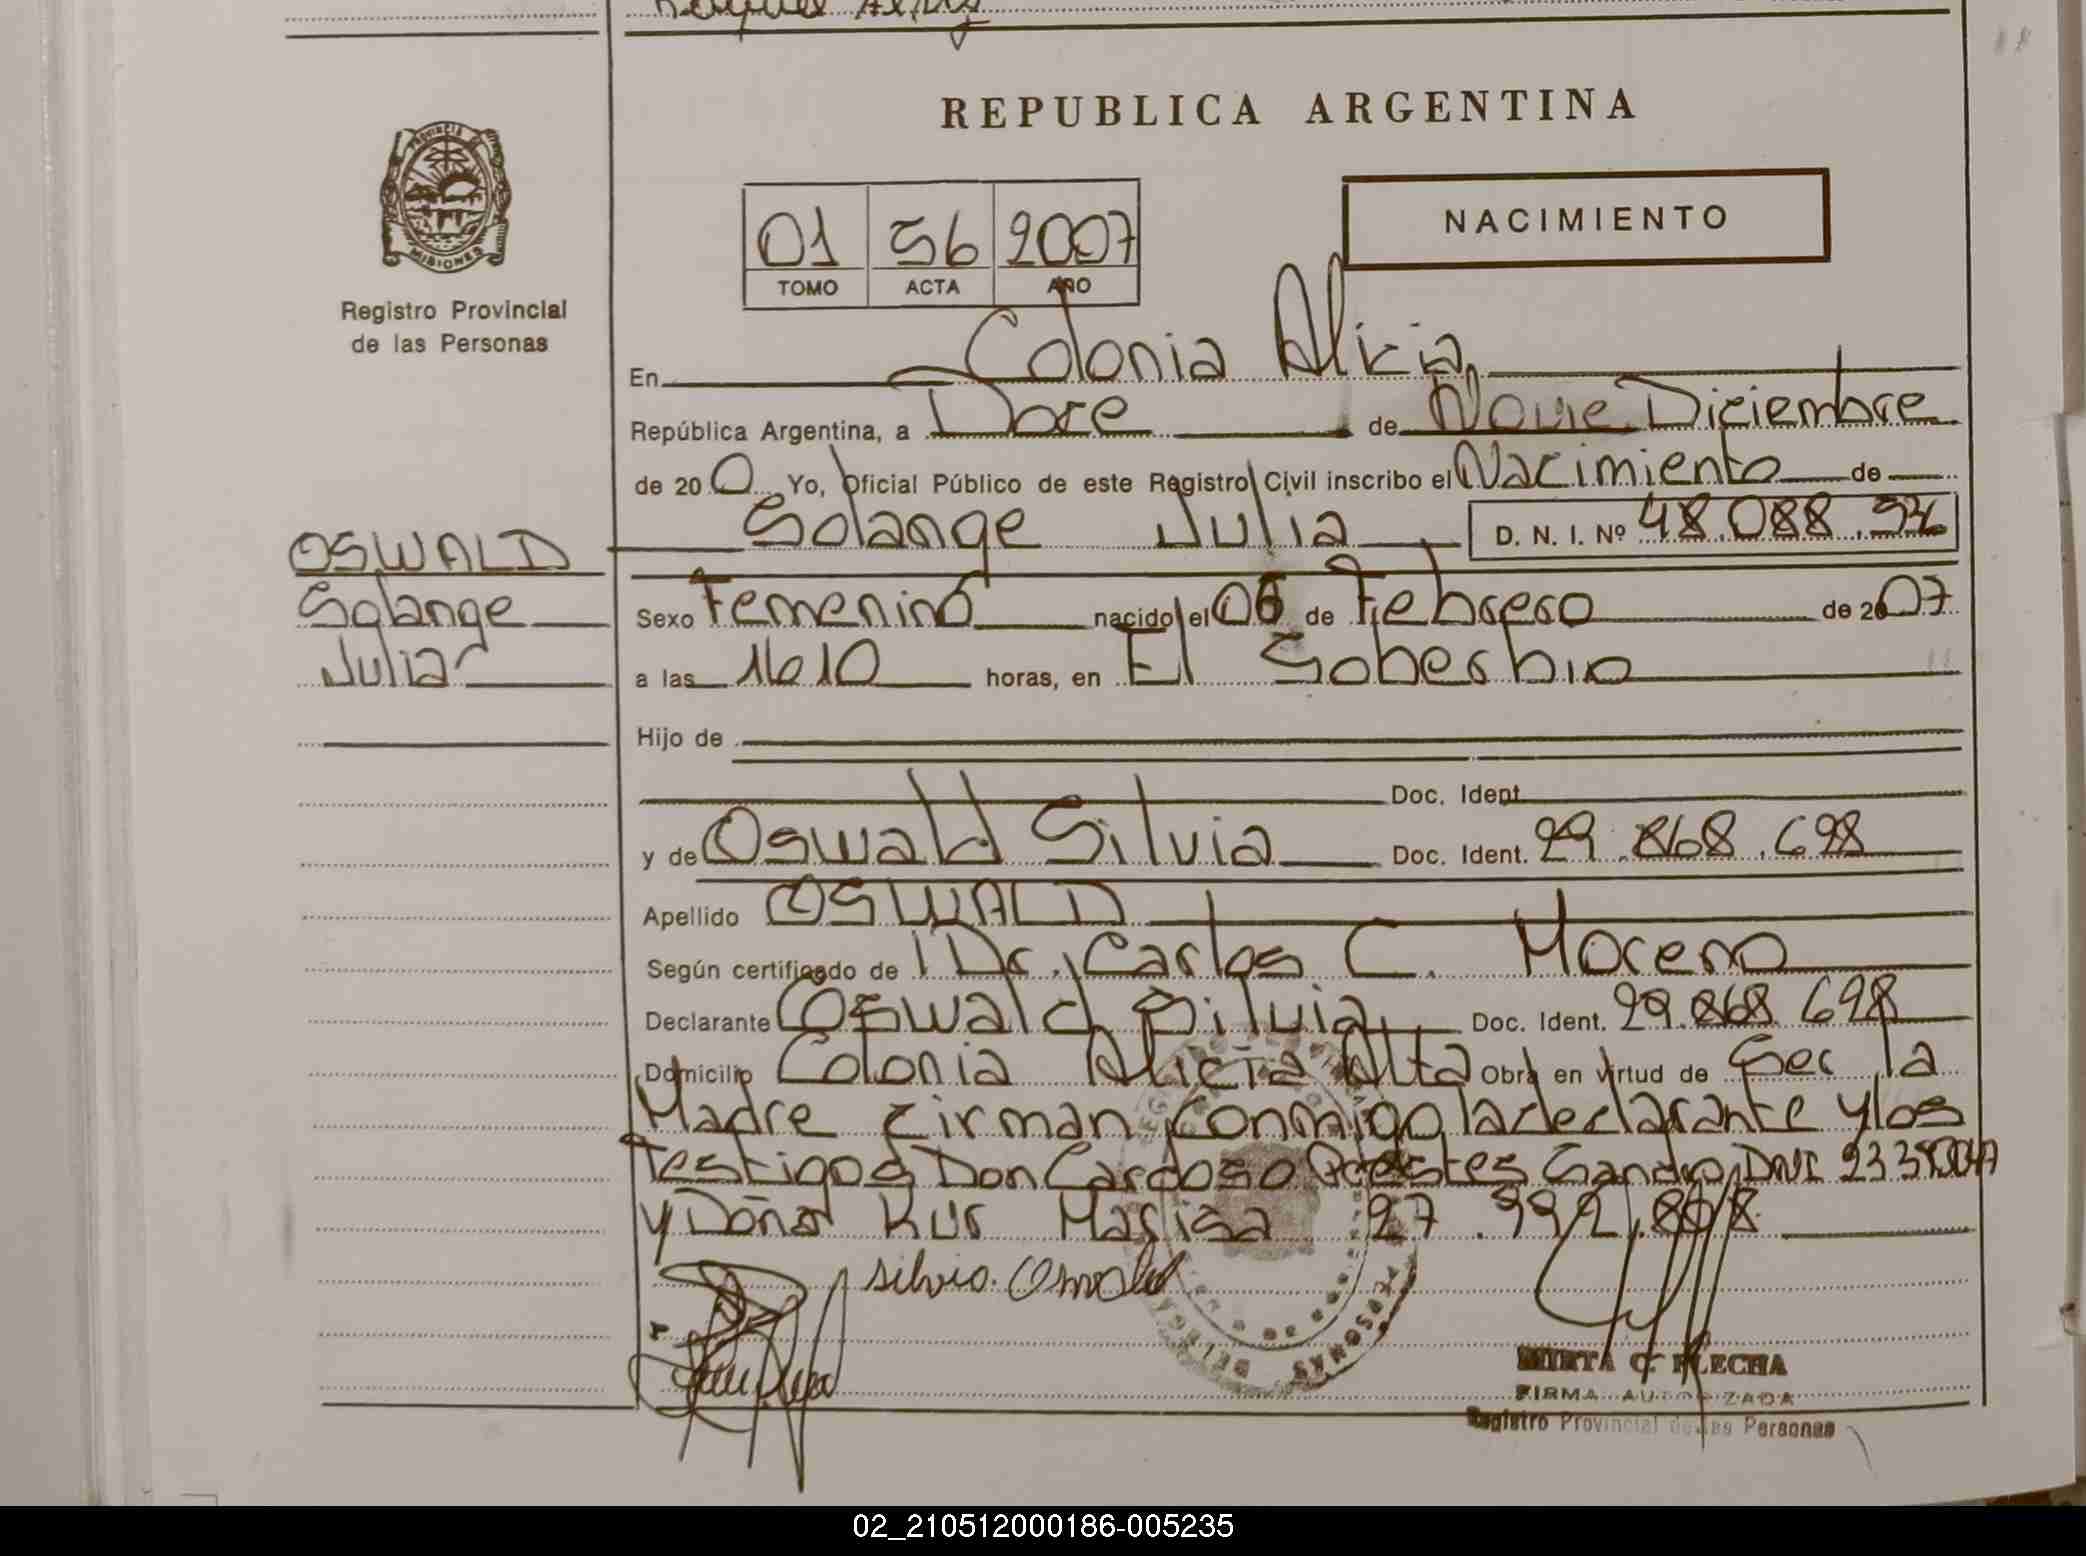 REPUBLICA ARGENTINA
PROVINCIA DE
MISIONES
Registro Provincial
de las Personas
01 56 2007
TOMO ACTA AÑO
NACIMIENTO
En Colonia Alicia
República Argentina, a Doce de Diciembre
de 20 0 Yo, Oficial Público de este Registro Civil inscribo el Nacimiento de
Solange Julia D. N. I. Nº 48.088.
OSWALD
Solange
Julia
Sexo Femenino nacido el 06 de Febrero de 2007
a las 16 10 horas, en El Soberbio
Hijo de
Doc. Ident.
y de Oswald Silvia Doc. Ident. 29.868.698
Apellido OSWALD
Según certificado de Dr. Carlos C. Moreno
Declarante Oswald Silvia Doc. Ident. 29.868 698
Domicilio Colonia Alicia Alta Obra en virtud de Ser la
Madre Firman conmigo la declarante y los
Testigos Don Cardoso Sandro DNI
y Doña Kur Marisa 27
silvia. Oswald
PERSONAS
MIRTA C. FLECHA
FIRMA AUTORIZADA
Registro Provincial de las Personas
02_210512000186-005235